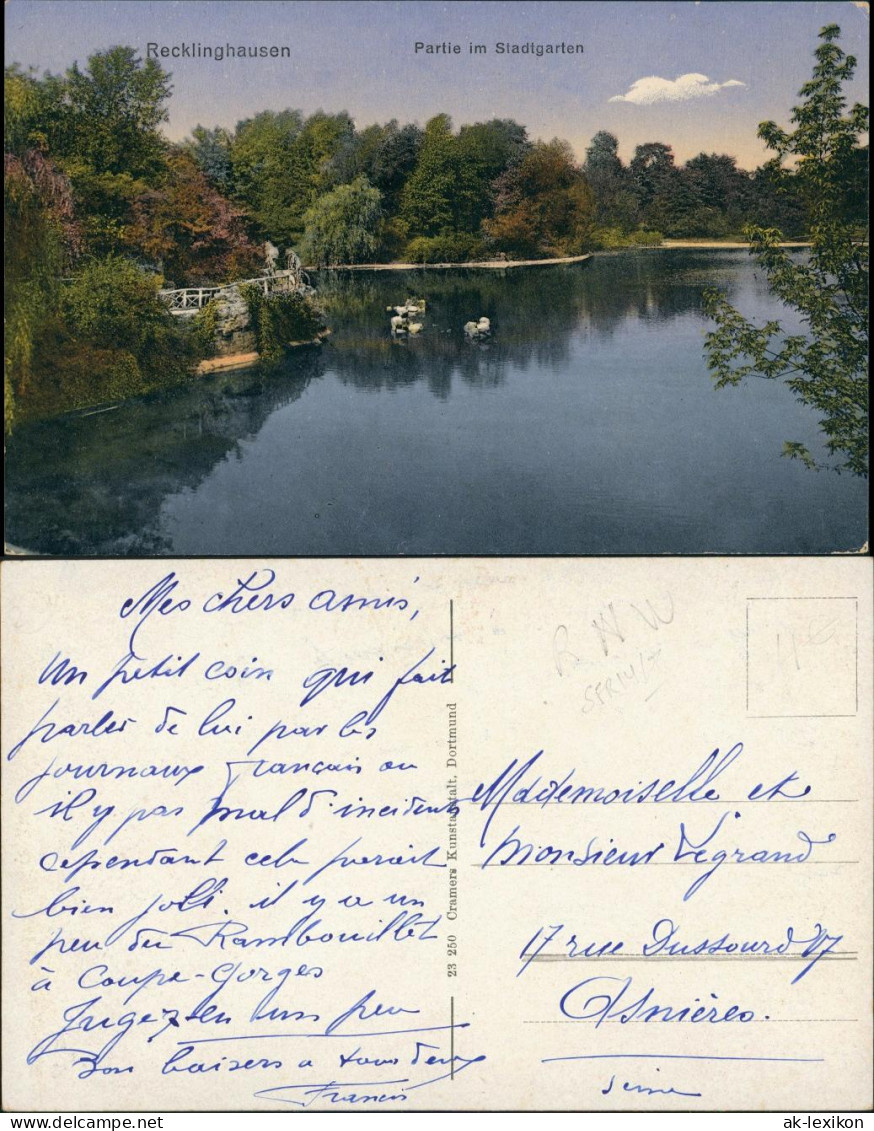 Recklinghausen
Partie im Stadtgarten
Mes chers amis,
Un petit coin qui fait
parler de lui par les
journaux Français ou
il y pas mal d'incidents
cependant cela parait
bien joli. il y a un
peu du Rambouillet
à Coupe-Gorges
Jugez-en un peu
Bon baisers a tous deux
Francis
23 250 Cramers Kunstanstalt, Dortmund
Mademoiselle et
Monsieur Legrand
17 rue Dussourd 17
Asnières.
Seine
ak-lexikon